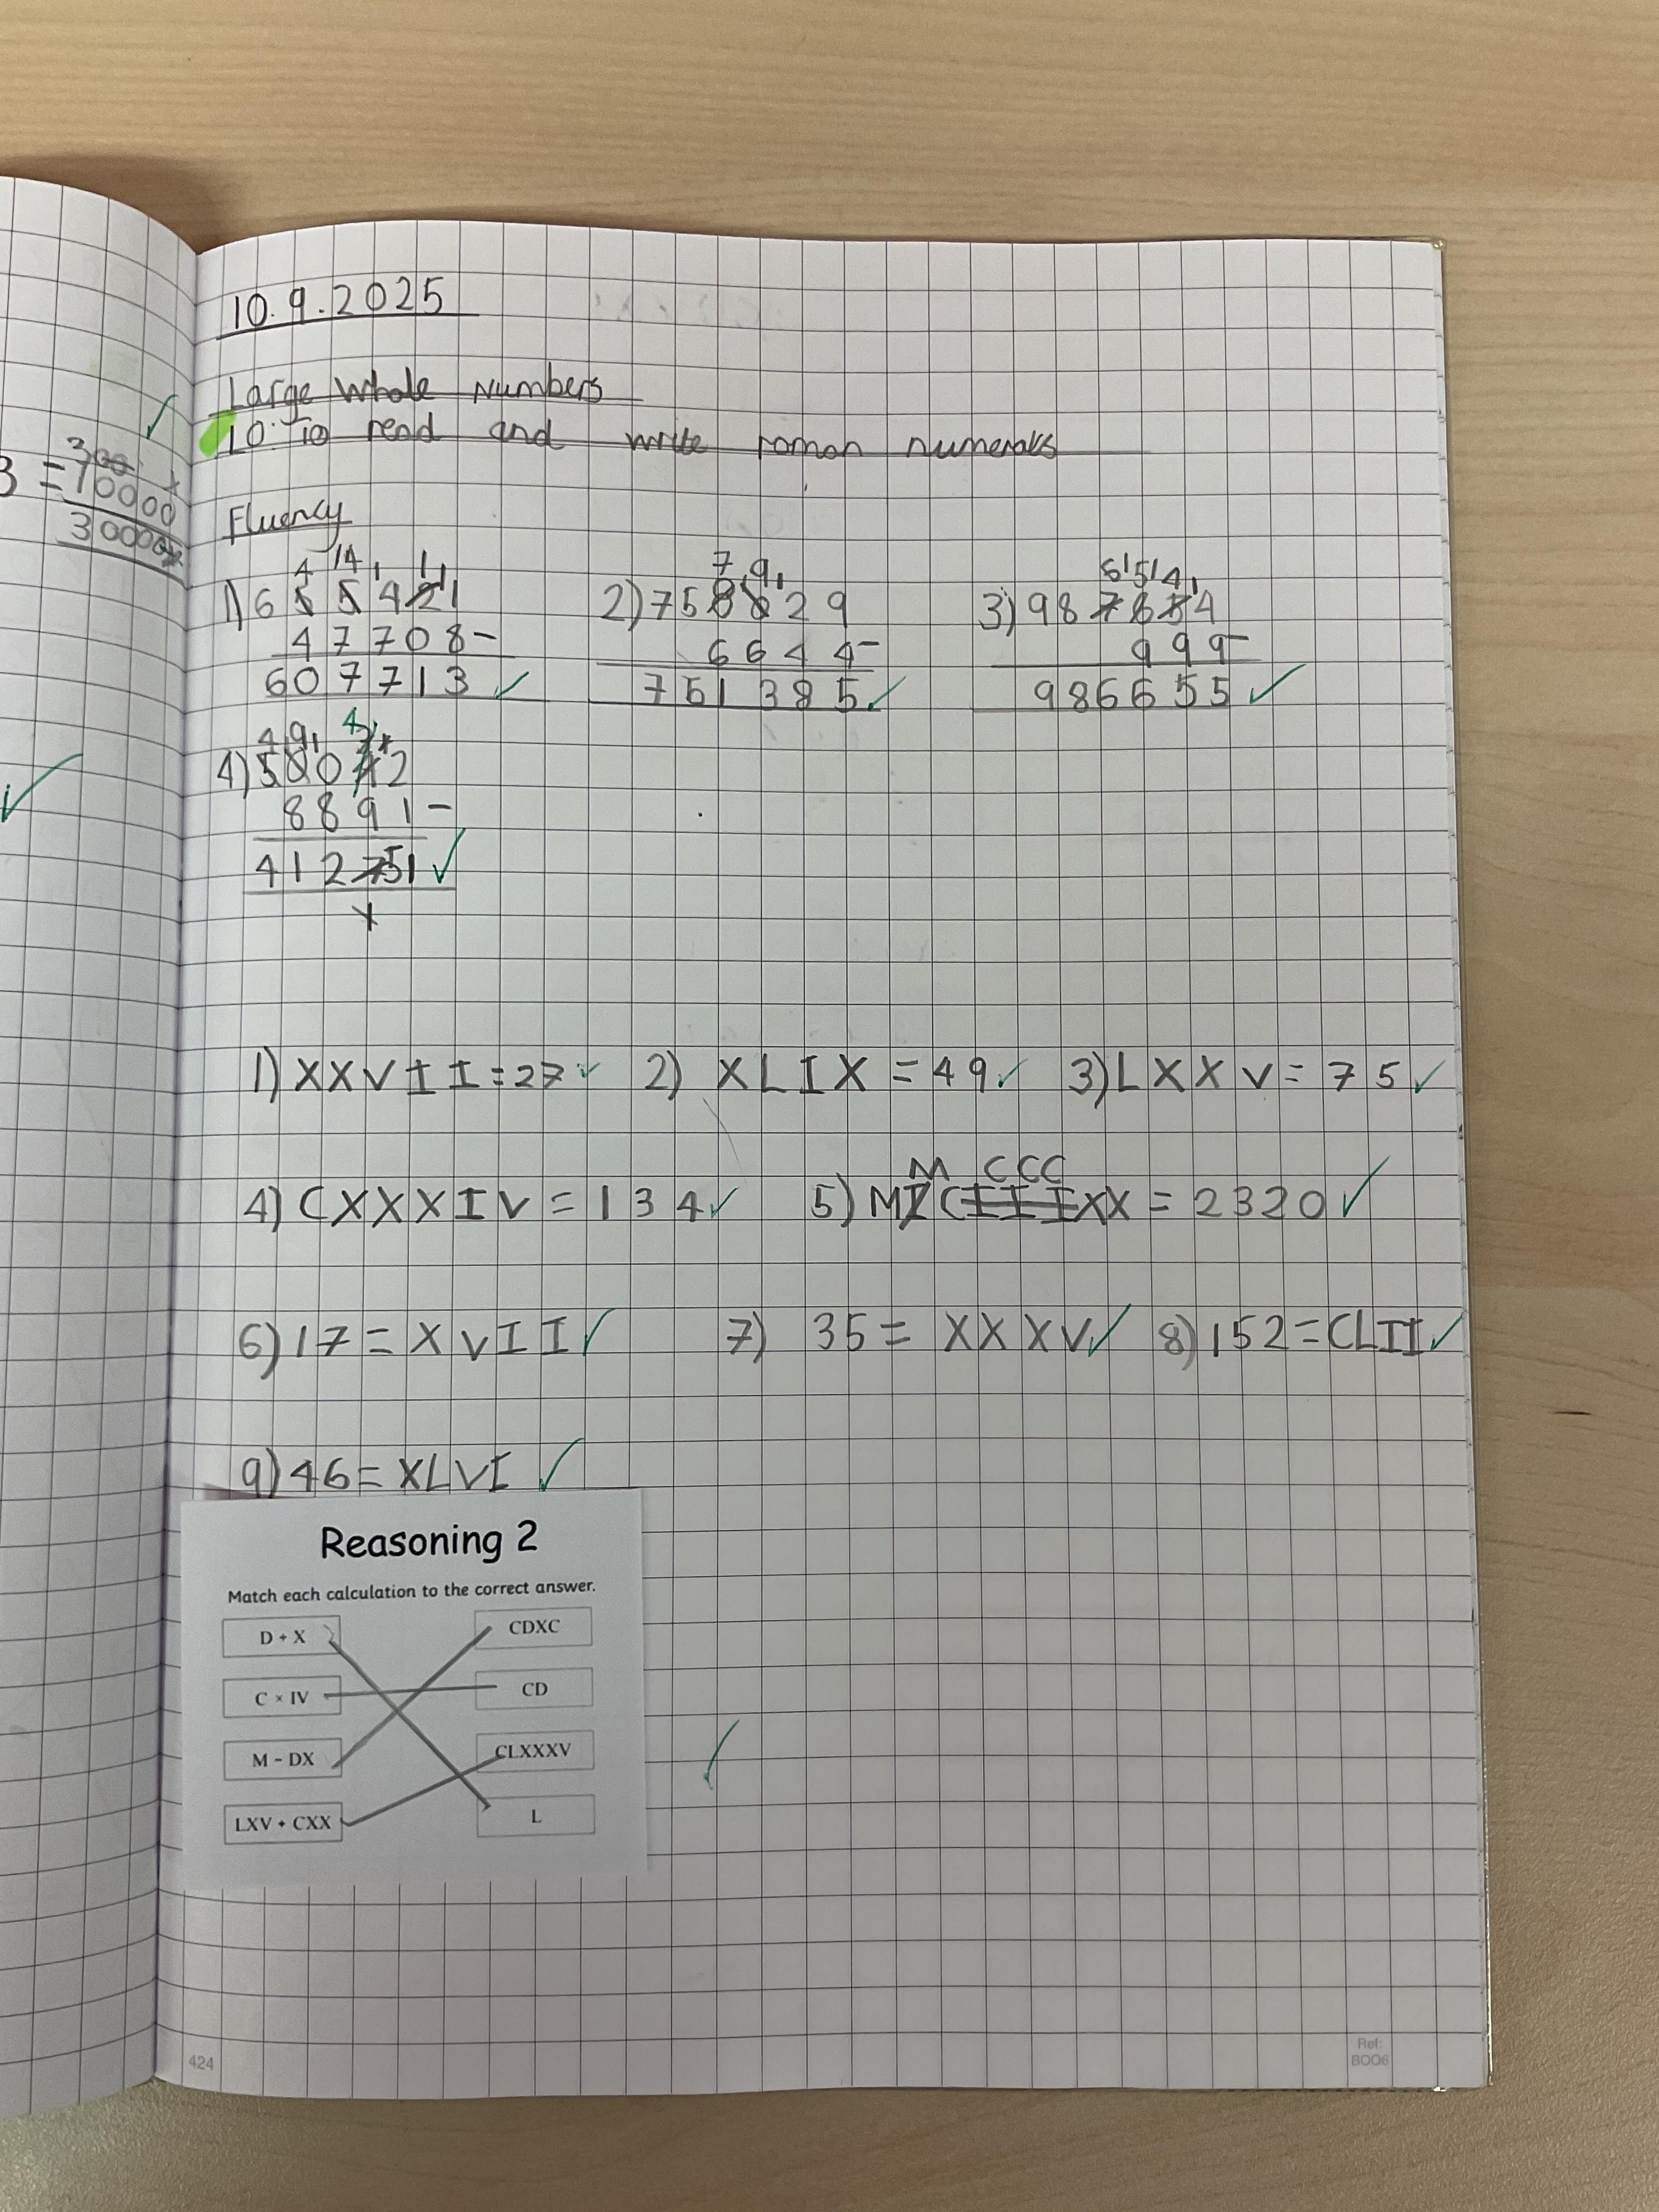 10.9.2025
Large Whole Numbers
LO: To read and write roman numerals
3 = 10000 x
30000
Fluency
4 14 1 1 1
1) 6 5 5 4 2 1
4 7 7 0 8 -
6 0 7 7 1 3 ✓
7 1 9 1
2) 7 5 8 0 2 9
6 6 4 4 -
7 5 1 3 8 5 ✓
6 1 5 1 4 1
3) 9 8 7 6 5 4
9 9 9 -
9 8 6 6 5 5 ✓
4 9 1 4 1
4) 5 0 0 4 2
8 8 9 1 -
4 1 2 7 5 1 ✓
x
1) XXVII = 27 ✓ 2) XLIX = 49 ✓ 3) LXXV = 75 ✓
M CCC
4) CXXXIV = 134 ✓ 5) MICIIIXX = 2320 ✓
6) 17 = XVII ✓ 7) 35 = XXXV ✓ 8) 152 = CLII ✓
9) 46 = XLVI ✓
Reasoning 2
Match each calculation to the correct answer.
D + X CDXC
C × IV CD
M - DX CLXXXV
LXV + CXX L
424
Ref:
BOO6